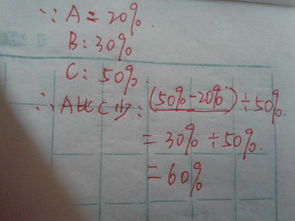 ∵ A = 20%
B: 30%
C: 50%.
∴ A比C少: (50%-20%)÷50%
= 30% ÷50%.
= 60%